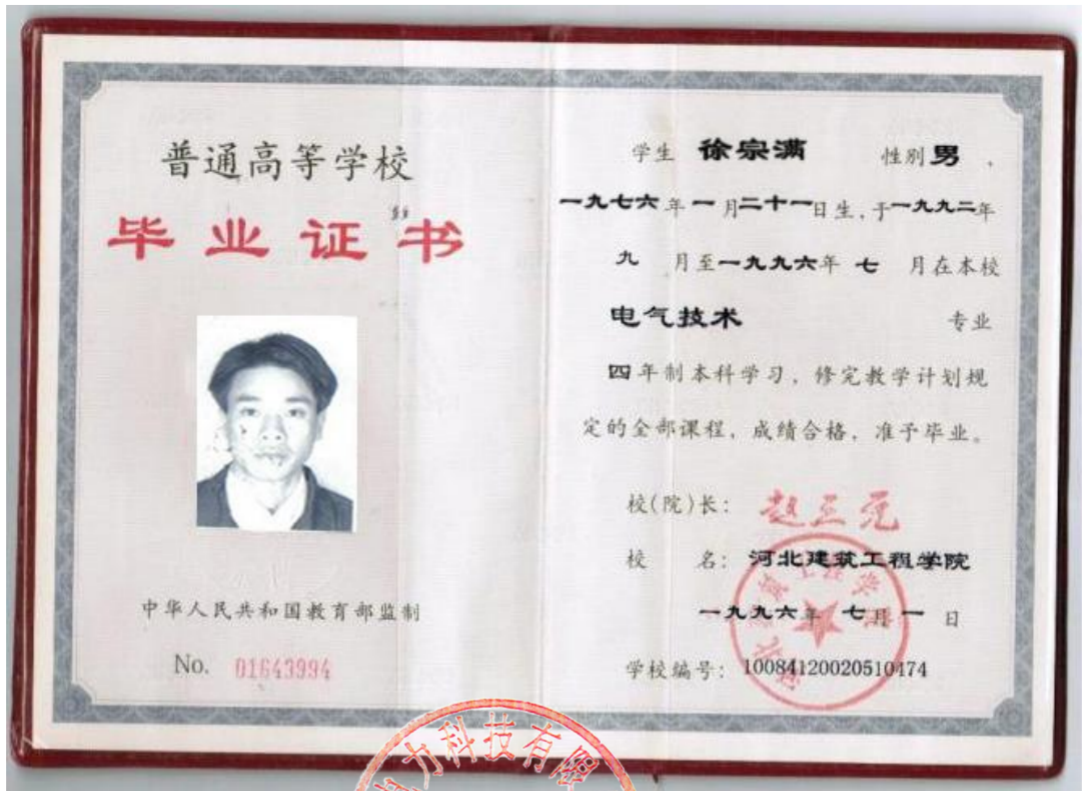 普通高等学校
毕业证书
中华人民共和国教育部监制
No. 01643994
学生 徐宗满 性别 男 ,
一九七六年一月二十一日生,于一九九二年
九 月至一九九六年 七 月在本校
电气技术 专业
四年制本科学习，修完教学计划规
定的全部课程，成绩合格，准予毕业。
校(院)长：赵三元
校 名：河北建筑工程学院
一九九六年 七月 一 日
学校编号：10084120020510474
力科技有限